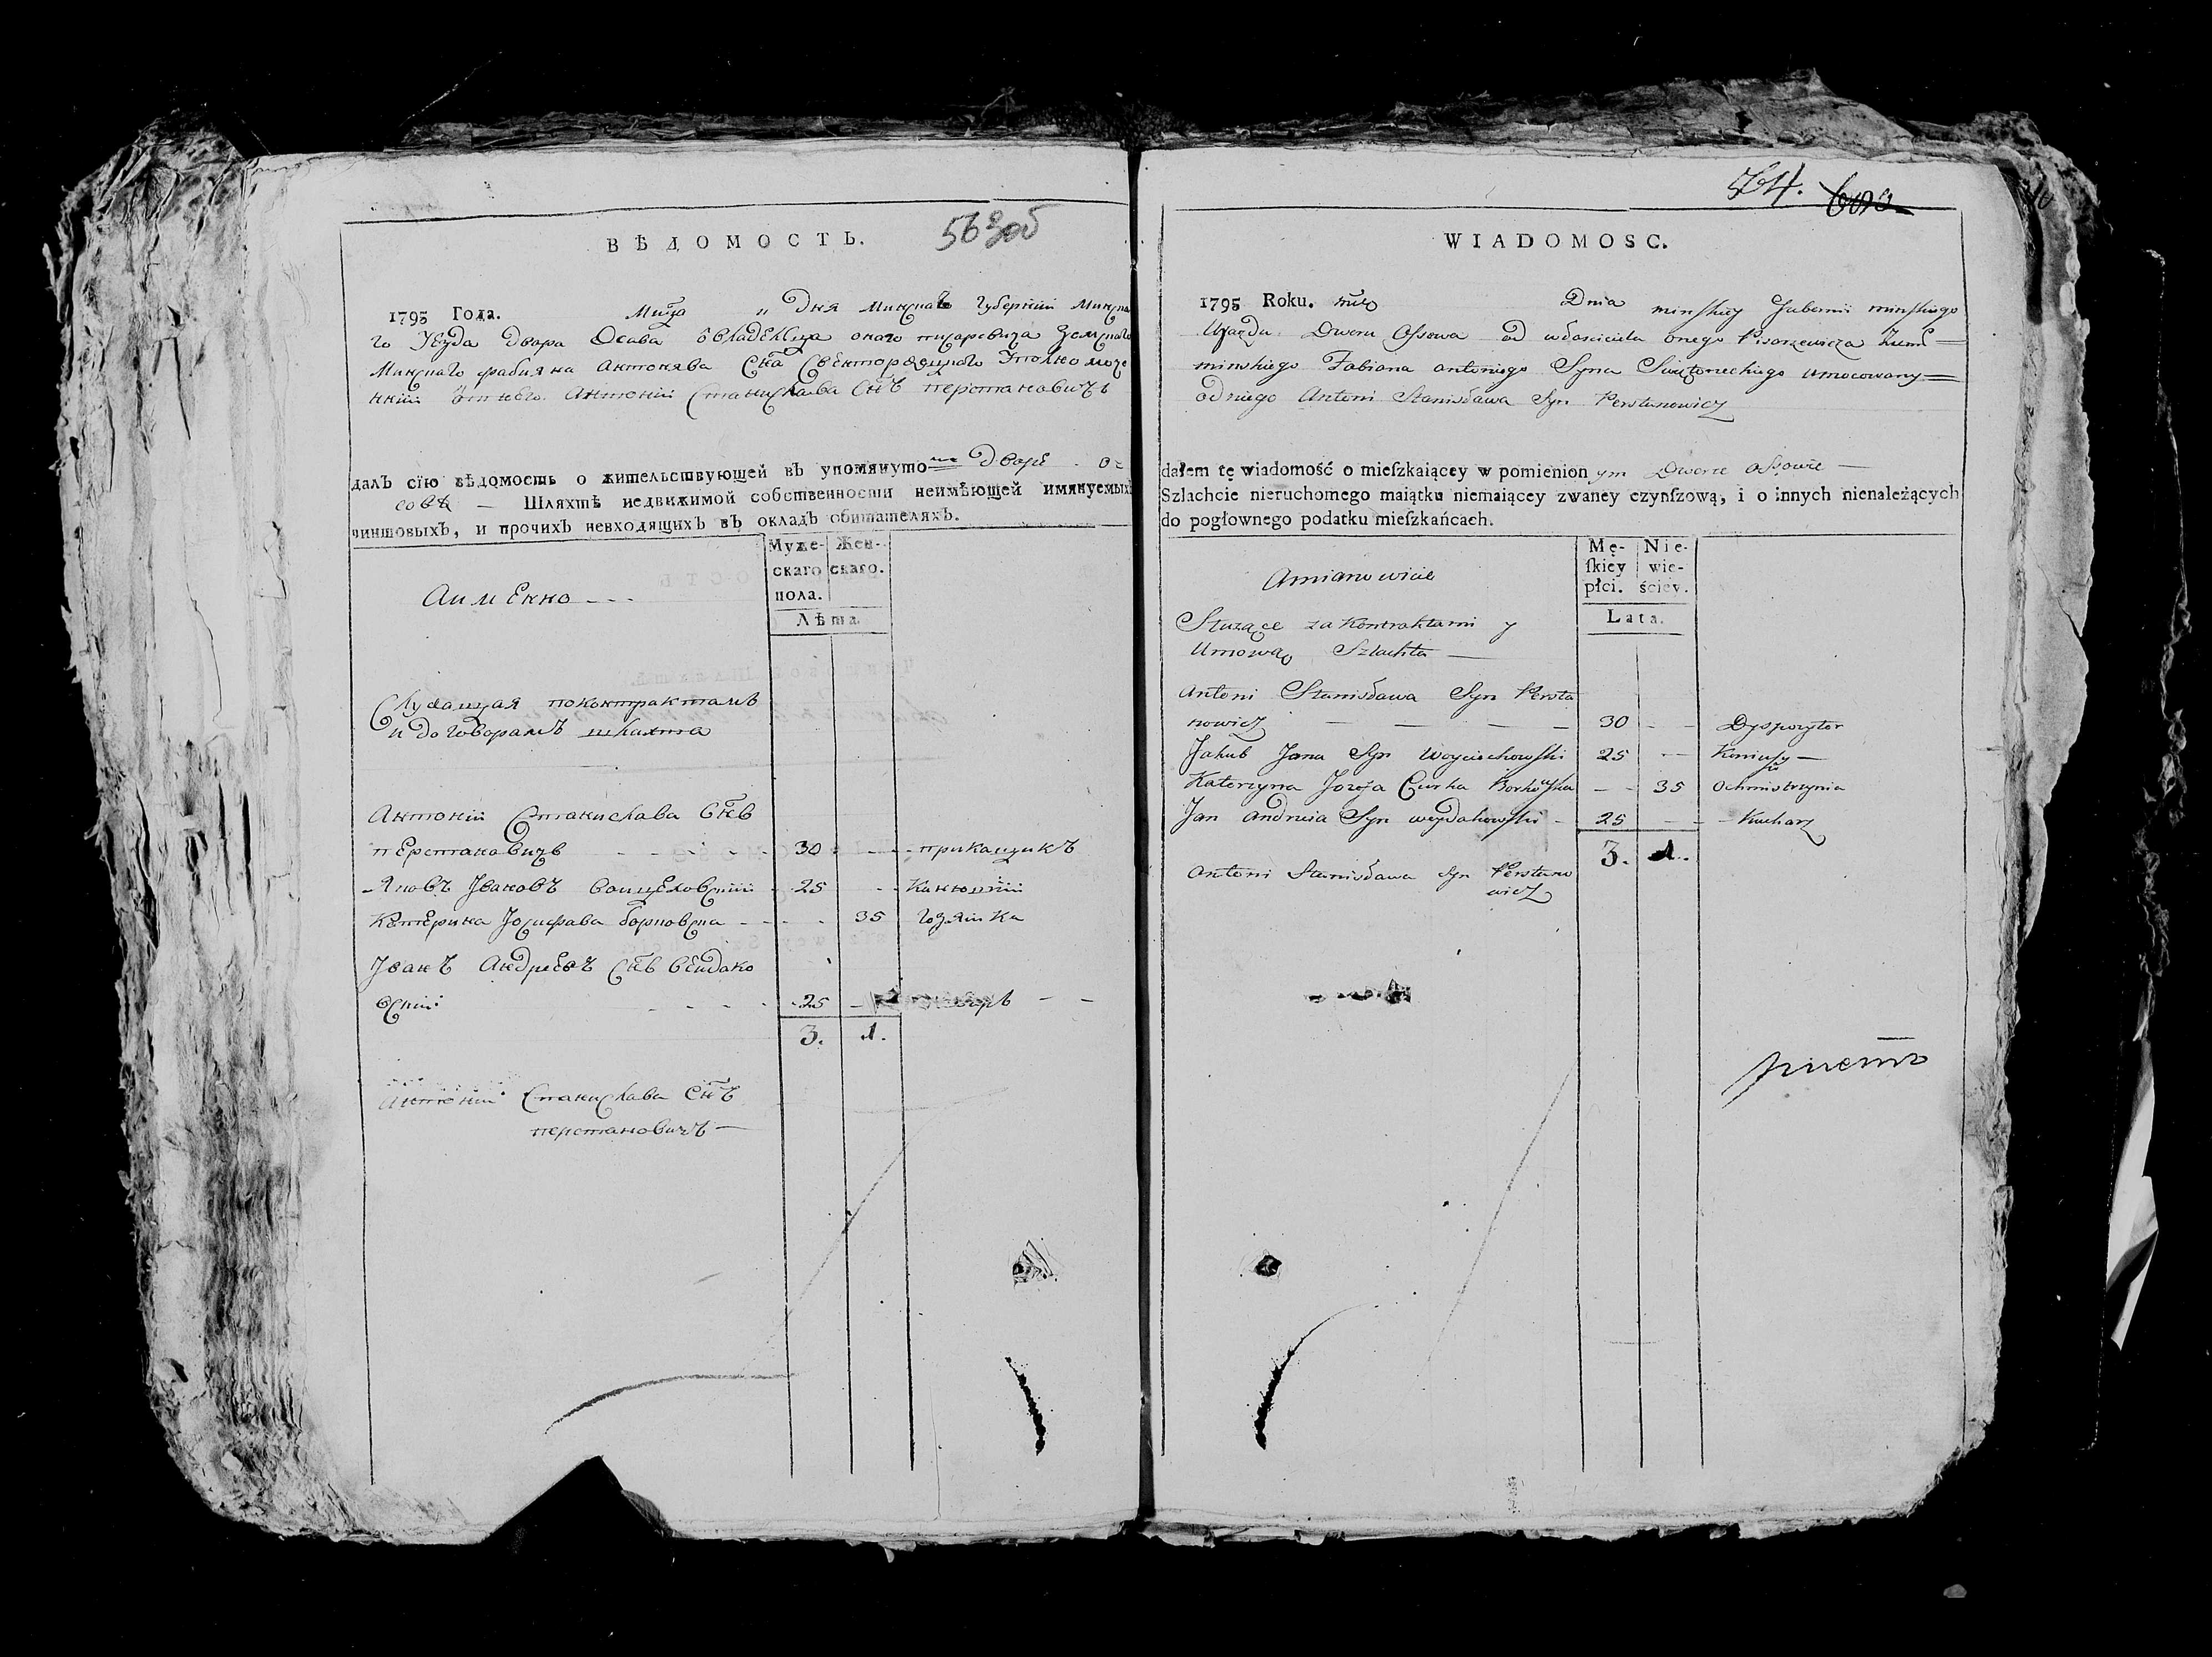 563об
ВѢДОМОСТЬ.
1795 Года. Мц̃а " Дня Минскаго Губерніи Минска
го Уезда двора Осава овладелца онаго писаревича Земскаго
Минскаго фабияна антонява Сна Свенторжецкаго Уполно моче
нний отнего Антоній Станислава Снъ перстановичъ
далъ сїю вѣдомость о жительствующей въ упомянуто мъ дворе о=
сове — Шляхтѣ недвижимой собственности неимѣющей имянуемыхъ
чиншовыхъ, и прочихъ невходящихъ въ окладъ обитателяхъ.
Муже- Жен-
скаго скаго.
пола.
Лѣта
Аимённо ---
Служащая поконтрактамъ
и договорамъ шляхта
Антоній Станислава Снъ
перстановичъ 30 прикащикъ
Яковъ Ивановъ Воицеховский 25 Канюший
Катерина Іосифава борковска 35
Іванъ Андреевъ Снъ Веидако
вский 25
3. 1.
Антоній Станислава Снъ
перстановичъ —
564.
WIADOMOSC.
1795 Roku. Dnia minskiey Gubernii minskiego
Ujazdu Dworu Ossowa od własciciela onego Pisarzewicza Ziem=
minskiego Fabiana antoniego Syna Swiętorzeckiego umocowany=
od niego Antoni Stanisława Syn Perstanowicz
dałem tę wiadomość o mieſzkaiącey w pomienion ym Dworze Ossowie —
Szlachcie nieruchomego maiątku niemaiącey zwaney czynſzową, i o innych nienależących
do pogłownego podatku mieſzkańcach.
Mę- Nie-
ſkiey wie-
płci. ściey.
Lata.
Amianowicie
Służące za Kontraktami y
Umową Szlachta —
Antoni Stanisława Syn Persta
nowicz — — — — 30 - - Dyspozytor
Jakub Jana Syn Woyciechowski 25 — Koniuszy —
Katerzyna Jozefa Curka Borkowska — - 35 Ochmistrzynia
Jan Andrzeia Syn weydakowski - 25 - - Kucharz
3. 1.
Antoni Stanisława Syn Perstano
wicz